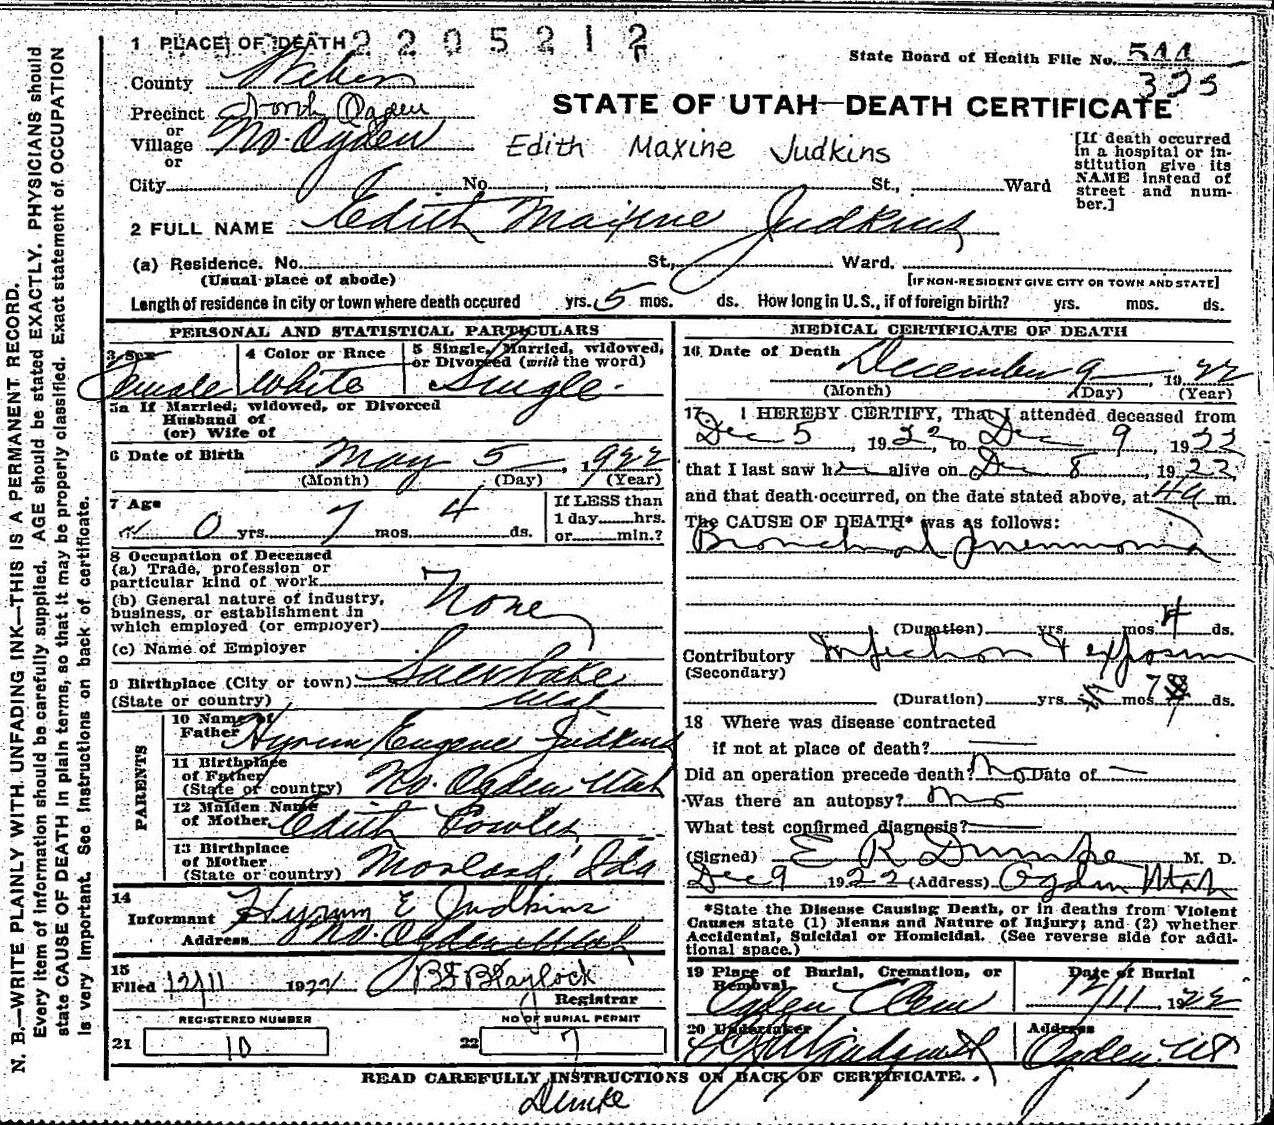 1 PLACE OF DEATH 2205212
State Board of Health File No. 544
325
County Weber
Precinct North Ogden
or
Village No. Ogden
or
City No. St., Ward
STATE OF UTAH—DEATH CERTIFICATE
Edith Maxine Judkins
[If death occurred
in a hospital or in-
stitution give its
NAME instead of
street and num-
ber.]
2 FULL NAME Edith Maxine Judkins
(a) Residence. No. St., Ward.
(Usual place of abode) [IF NON-RESIDENT GIVE CITY OR TOWN AND STATE]
Length of residence in city or town where death occured yrs. 5 mos. ds. How long in U.S., if of foreign birth? yrs. mos. ds.
PERSONAL AND STATISTICAL PARTICULARS
3 Sex 4 Color or Race 5 Single, Married, widowed,
or Divorced (write the word)
Female White Single
5a If Married, widowed, or Divorced
Husband of
(or) Wife of
6 Date of Birth May 5, 1922
(Month) (Day) (Year)
7 Age 0 yrs. 7 mos. 4 ds.
If LESS than
1 day hrs.
or min.?
8 Occupation of Deceased
(a) Trade, profession or
particular kind of work
(b) General nature of industry,
business, or establishment in
which employed (or employer) None
(c) Name of Employer
9 Birthplace (City or town)
(State or country)
PARENTS
10 Name of
Father Hyrum Eugene Judkins
11 Birthplace
of Father
(State or country) No. Ogden Utah
12 Maiden Name
of Mother Edith Cowles
13 Birthplace
of Mother
(State or country) Moreland, Ida
14
Informant Hyrum E Judkins
Address No. Ogden Utah
15
Filed 12/11 1922 BF Blaylock
Registrar
REGISTERED NUMBER NO OF BURIAL PERMIT
21 10 22 7
MEDICAL CERTIFICATE OF DEATH
16 Date of Death December 9, 1922
(Month) (Day) (Year)
17 I HEREBY CERTIFY, That I attended deceased from
Dec 5, 1922, to Dec 9, 1922
that I last saw her alive on Dec 8, 1922,
and that death occurred, on the date stated above, at 4a m.
The CAUSE OF DEATH* was as follows:
Bronchial pneumonia
(Duration) yrs. mos. 4 ds.
Contributory Infection & exposure
(Secondary)
(Duration) yrs. mos. 7 ds.
18 Where was disease contracted
if not at place of death?
Did an operation precede death? No Date of
Was there an autopsy? no
What test confirmed diagnosis?
(Signed) E R Dumke M. D.
Dec 9 1922 (Address) Ogden Utah
*State the Disease Causing Death, or in deaths from Violent
Causes state (1) Means and Nature of Injury; and (2) whether
Accidental, Suicidal or Homicidal. (See reverse side for addi-
tional space.)
19 Place of Burial, Cremation, or
Removal Date of Burial
Ogden Cem 12/11 1922
20 Undertaker Address
Ogden, Ut
READ CAREFULLY INSTRUCTIONS ON BACK OF CERTIFICATE.
Dumke
N. B.—WRITE PLAINLY WITH UNFADING INK—THIS IS A PERMANENT RECORD.
Every item of information should be carefully supplied. AGE should be stated EXACTLY. PHYSICIANS should
state CAUSE OF DEATH in plain terms, so that it may be properly classified. Exact statement of OCCUPATION
is very important. See instructions on back of certificate.